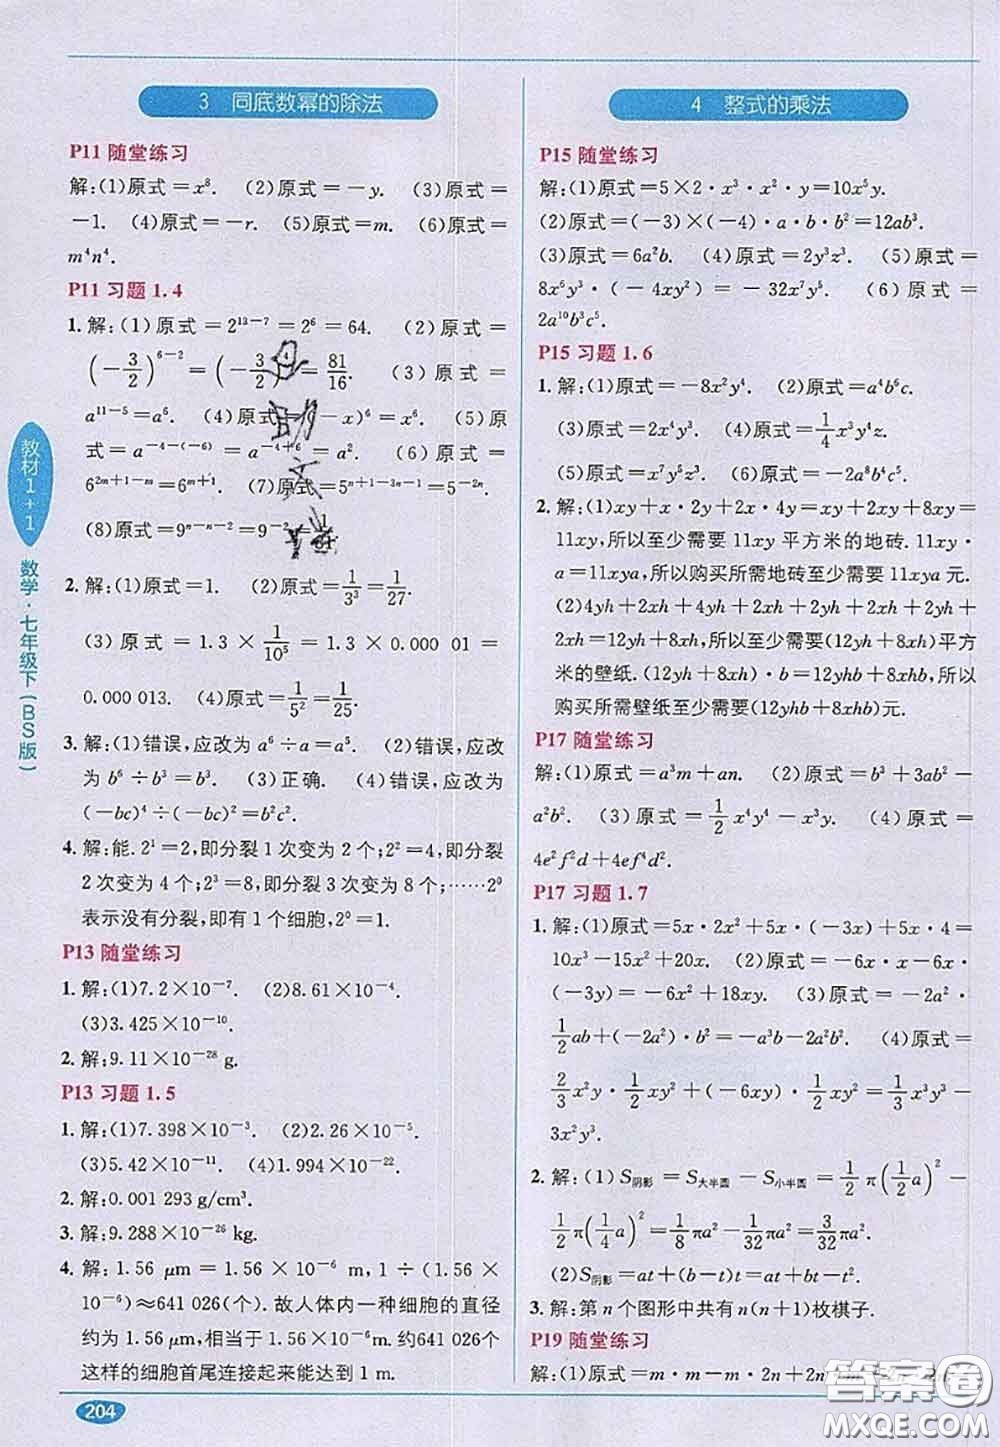 3 同底数幂的除法
P11 随堂练习
解:(1)原式=x⁸. (2)原式=-y. (3)原式=
-1. (4)原式=-r. (5)原式=m. (6)原式=
m⁴n⁴.
P11 习题 1.4
1. 解:(1)原式=2¹³⁻⁷=2⁶=64. (2)原式=
(-3/2)⁶⁻²=(-3/2)⁴=81/16. (3)原式=
a¹¹⁻⁵=a⁶. (4)原式=(-x)⁶=x⁶. (5)原
式=a⁻⁴⁻⁽⁻⁶⁾=a⁻⁴⁺⁶=a². (6)原式=
6²ᵐ⁺¹⁻ᵐ=6ᵐ⁺¹. (7)原式=5ⁿ⁺¹⁻³ⁿ⁻¹=5⁻²ⁿ.
(8)原式=9ⁿ⁻ⁿ⁻²=9⁻²=1/81.
2. 解:(1)原式=1. (2)原式=1/3³=1/27.
(3)原式=1.3×1/10⁵=1.3×0.000 01=
0.000 013. (4)原式=1/5²=1/25.
3. 解:(1)错误,应改为 a⁶÷a=a⁵. (2)错误,应改
为 b⁶÷b³=b³. (3)正确. (4)错误,应改为
(-bc)⁴÷(-bc)²=b²c².
4. 解:能.2¹=2,即分裂 1 次变为 2 个;2²=4,即分裂
2 次变为 4 个;2³=8,即分裂 3 次变为 8 个;……2⁰
表示没有分裂,即有 1 个细胞,2⁰=1.
P13 随堂练习
1. 解:(1)7.2×10⁻⁷. (2)8.61×10⁻⁴.
(3)3.425×10⁻¹⁰.
2. 解:9.11×10⁻²⁸ g.
P13 习题 1.5
1. 解:(1)7.398×10⁻³. (2)2.26×10⁻⁵.
(3)5.42×10⁻¹¹. (4)1.994×10⁻²².
2. 解:0.001 293 g/cm³.
3. 解:9.288×10⁻²⁶ kg.
4. 解:1.56 μm=1.56×10⁻⁶ m,1÷(1.56×
10⁻⁶)≈641 026(个).故人体内一种细胞的直径
约为 1.56 μm,相当于 1.56×10⁻⁶ m.约641 026个
这样的细胞首尾连接起来能达到 1 m.
4 整式的乘法
P15 随堂练习
解:(1)原式=5×2·x³·x²·y=10x⁵y.
(2)原式=(-3)×(-4)·a·b·b²=12ab³.
(3)原式=6a²b. (4)原式=2y³z³. (5)原式=
8x⁶y³·(-4xy²)=-32x⁷y⁵. (6)原式=
2a¹⁰b³c⁵.
P15 习题 1.6
1. 解:(1)原式=-8x²y⁴. (2)原式=a⁴b⁶c.
(3)原式=2x⁴y³. (4)原式=1/4x³y⁴z.
(5)原式=x⁷y⁵z. (6)原式=-2a⁸b⁶c.
2. 解:(1)xy+x·2y+2x·4y=xy+2xy+8xy=
11xy,所以至少需要 11xy 平方米的地砖.11xy·
a=11xya,所以购买所需地砖至少需要 11xya 元.
(2)4yh+2xh+4xh+2yh+2xh+4yh+2yh+
2xh=12yh+8xh,所以至少需要(12yh+8xh)平方
米的壁纸.(12yh+8xh)·b=12yhb+8xhb,所以
购买所需壁纸至少需要(12yhb+8xhb)元.
P17 随堂练习
解:(1)原式=a³m+an. (2)原式=b³+3ab²-
a²b². (3)原式=1/2x⁴y⁴-x³y. (4)原式=
4e²f²d+4ef⁴d².
P17 习题 1.7
1. 解:(1)原式=5x·2x²+5x·(-3x)+5x·4=
10x³-15x²+20x. (2)原式=-6x·x-6x·
(-3y)=-6x²+18xy. (3)原式=-2a²·
1/2ab+(-2a²)·b²=-a³b-2a²b². (4)原式=
2/3x²y·1/2xy+(-6xy)·1/2xy=1/3x³y²-
3x²y³.
2. 解:(1)S阴影=S大半圆-S小半圆=1/2π(1/2a)²-
1/2π(1/4a)²=1/8πa²-1/32πa²=3/32πa².
(2)S阴影=at+(b-t)t=at+bt-t².
3. 解:第 n 个图形中共有 n(n+1)枚棋子.
P19 随堂练习
解:(1)原式=m·m-m·2n+2n
教材1+1
数学·七年级下(BS版)
204
答案圈
MXQE.COM